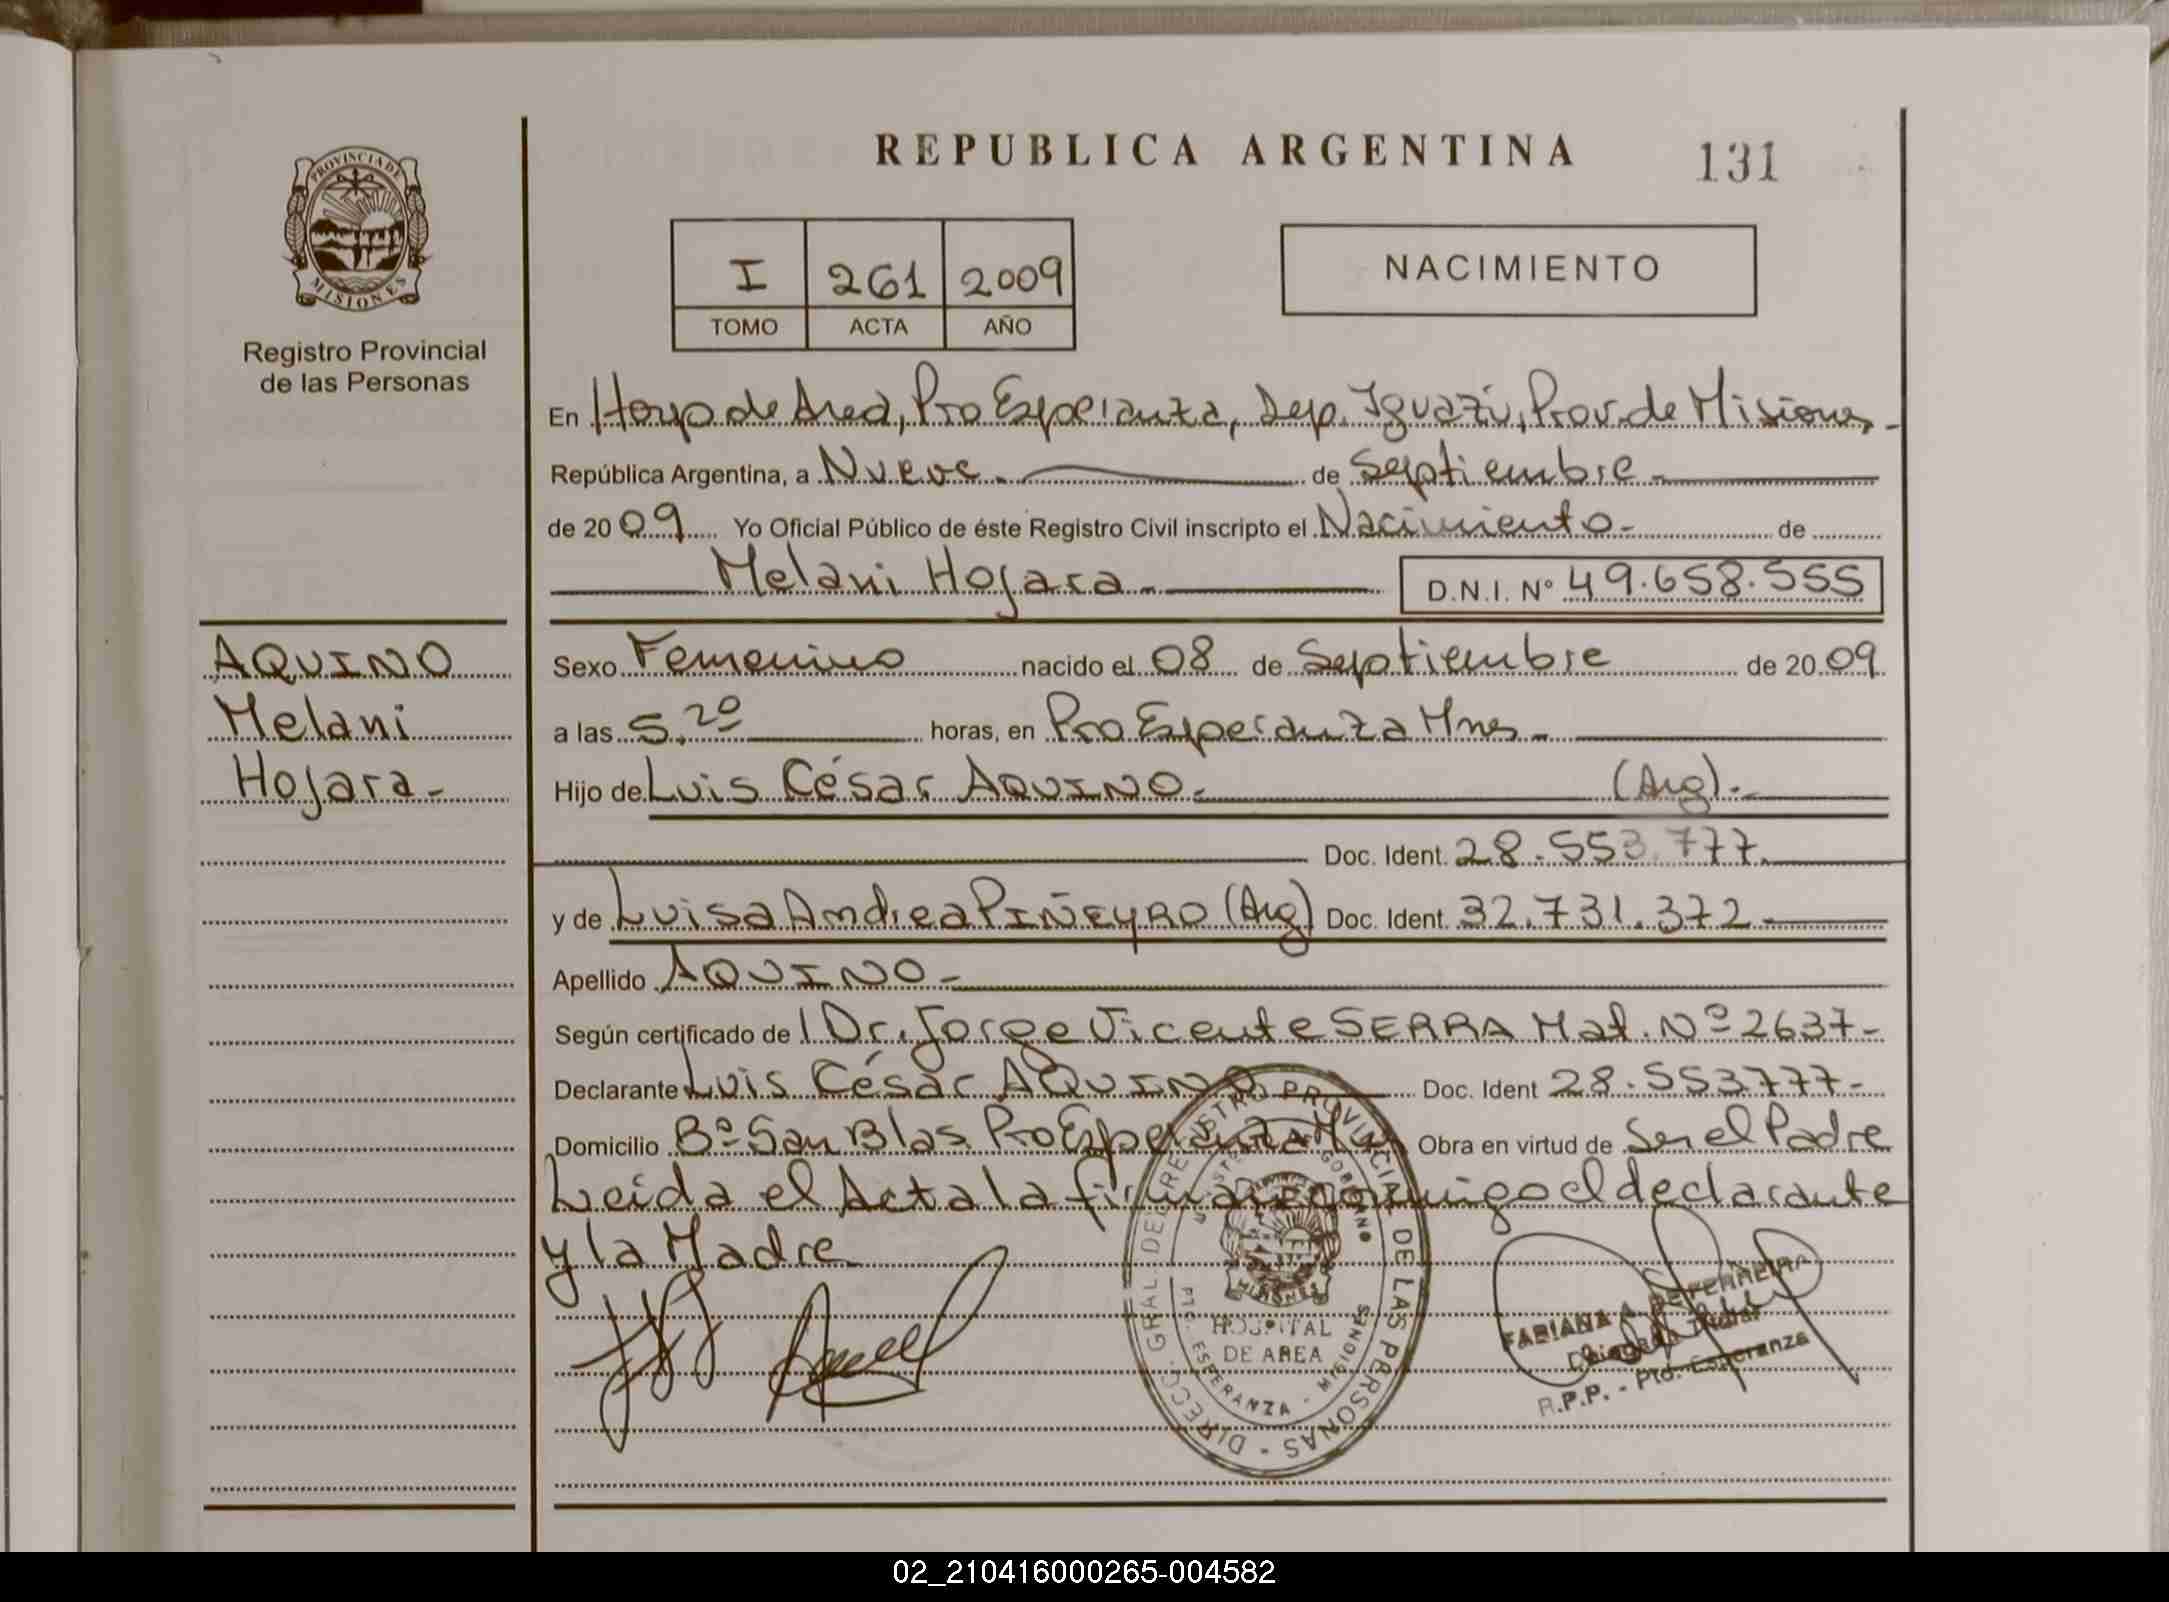 REPUBLICA ARGENTINA 131
PROVINCIA DE
MISIONES
Registro Provincial
de las Personas
I 261 2009
TOMO ACTA AÑO
NACIMIENTO
En Hosp de Area, Pto Esperanza, Dep. Iguazú, Prov. de Misiones.-
República Argentina, a Nueve.- de Septiembre.-
de 2009 Yo Oficial Público de éste Registro Civil inscripto el Nacimiento.- de
Melani Hojara.- D.N.I. Nº 49.658.555
AQUINO
Melani
Hojara.-
Sexo Femenino nacido el 08 de Septiembre de 2009
a las 5.20 horas, en Pto Esperanza Mnes.-
Hijo de Luis César AQUINO.- (Arg).-
Doc. Ident. 28.553.777.
y de Luisa Andrea PIÑEYRO (Arg) Doc. Ident. 32.731.372.-
Apellido AQUINO.-
Según certificado de Dr. Jorge Vicente SERRA Mat. Nº 2637-
Declarante Luis César AQUINO Doc. Ident 28.553777-
Domicilio Bº San Blas Pto Esperanza Mnes Obra en virtud de Ser el Padre
Leida el Acta la firman conmigo el declarante
y la Madre
DIRECC. GRAL DEL REGISTRO PROVINCIAL DE LAS PERSONAS
GOBIERNO
MISIONES
HOSPITAL
DE AREA
PTO. ESPERANZA - MISIONES
FABIANA A. DE FERREIRA
Delegada Titular
R.P.P. - Pto. Esperanza
02_210416000265-004582